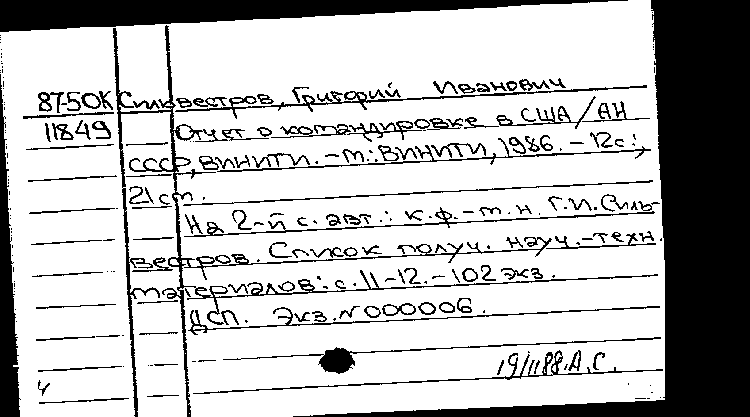 87-50К Сильвестров, Григорий Иванович
11849 Отчет о командировке в США/АН
СССР, ВИНИТИ. - М.: ВИНИТИ, 1986. - 12с.;
21 см.
На 2-й с. авт.: к.ф.-м.н. Г.И.Силь-
вестров. Список получ. науч.-техн.
материалов: с.11-12. - 102 экз.
ДСП. Экз. N 000006.
19/II 88. А.С.